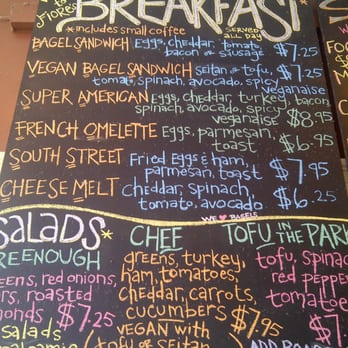 FIORE'S
BREAKFAST
*includes small coffee
SERVED ALL DAY
BAGEL SANDWICH Eggs, cheddar, tomato, bacon or sausage $7.25
VEGAN BAGEL SANDWICH seitan or tofu, tomat, spinach, avocado, veganaise $7.25
SUPER AMERICAN Eggs, cheddar, turkey, bacon, spinach, avocado, spicy veganaise $8.95
FRENCH OMELETTE Eggs, parmesan, toast $6.95
SOUTH STREET Fried Eggs & ham, parmesan, toast $7.95
CHEESE MELT cheddar, spinach, tomato, avocado $6.25
WE ♥ BAGELS
SALADS*
REENOUGH
eens, red onions,
rs, roasted
monds $7.25
salads
CHEF
greens, turkey,
ham, tomatoes,
cheddar, carrots,
cucumbers $7.95
VEGAN WITH
tofu or seitan
TOFU IN THE PARK
tofu, spinac
red pepper
tomatoe
$7